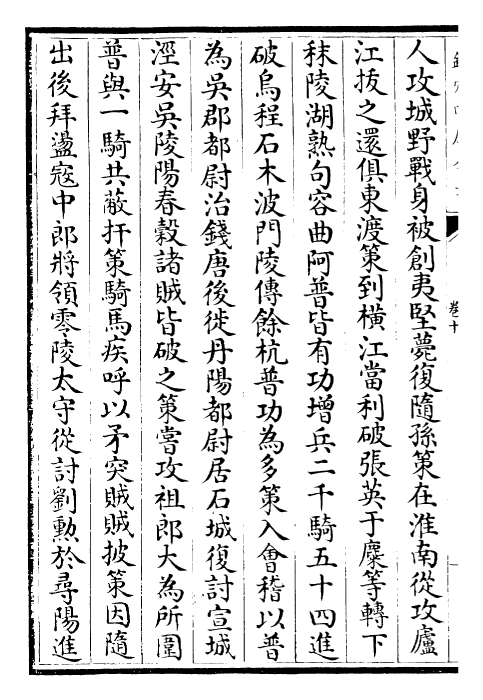 人攻城野戰身被創夷堅薨復隨孫策在淮南從攻廬
江拔之還俱東渡策到橫江當利破張英于麋等轉下
秣陵湖熟句容曲阿普皆有功增兵二千騎五十四進
破烏程石木波門陵傳餘杭普功為多策入會稽以普
為吳郡都尉治錢唐後徙丹陽都尉居石城復討宣城
涇安吳陵陽春穀諸賊皆破之策嘗攻祖郎大為所圍
普與一騎共蔽扞策騎馬疾呼以矛突賊賊披策因隨
出後拜盪寇中郎將領零陵太守從討劉勲於尋陽進
卷十